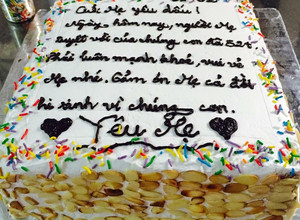 Gửi Mẹ yêu dấu!
Ngày hôm nay, người Mẹ
tuyệt vời của chúng con đã 52t
Phải luôn mạnh khoẻ, vui vẻ
Mẹ nhé. Cảm ơn Mẹ cả đời
hi sinh vì chúng con.
Yêu Mẹ